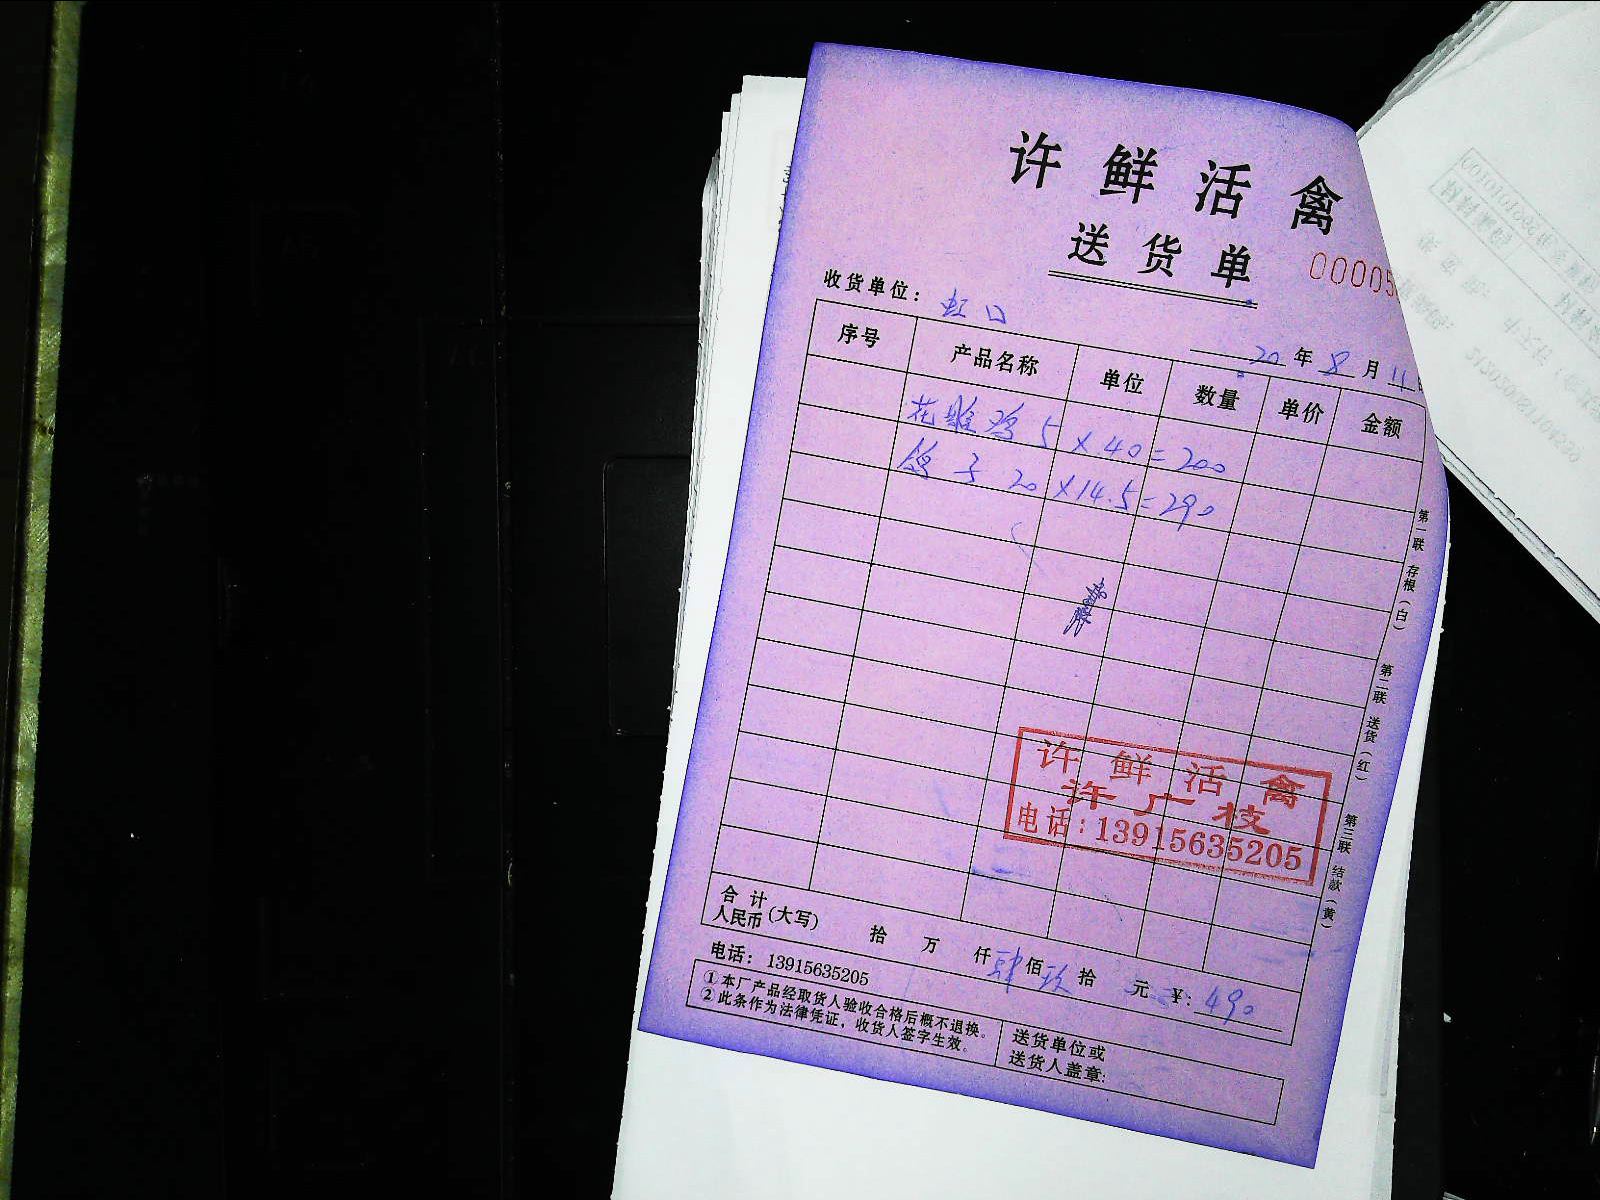 许鲜活禽
送货单
00005
收货单位： 虹口
20年8月11
序号 产品名称 单位 数量 单价 金额
花雕鸡 5 × 40 = 200
鸽子 20 × 14.5 = 290
第一联 存根（白）
第二联 送货（红）
第三联 结款（黄）
许鲜活禽
许广枝
电话：13915635205
合计人民币（大写） 拾 万 仟肆佰玖拾 元 ¥：490
电话：13915635205
①本厂产品经取货人验收合格后概不退换。
②此条作为法律凭证，收货人签字生效。
送货单位或
送货人盖章：